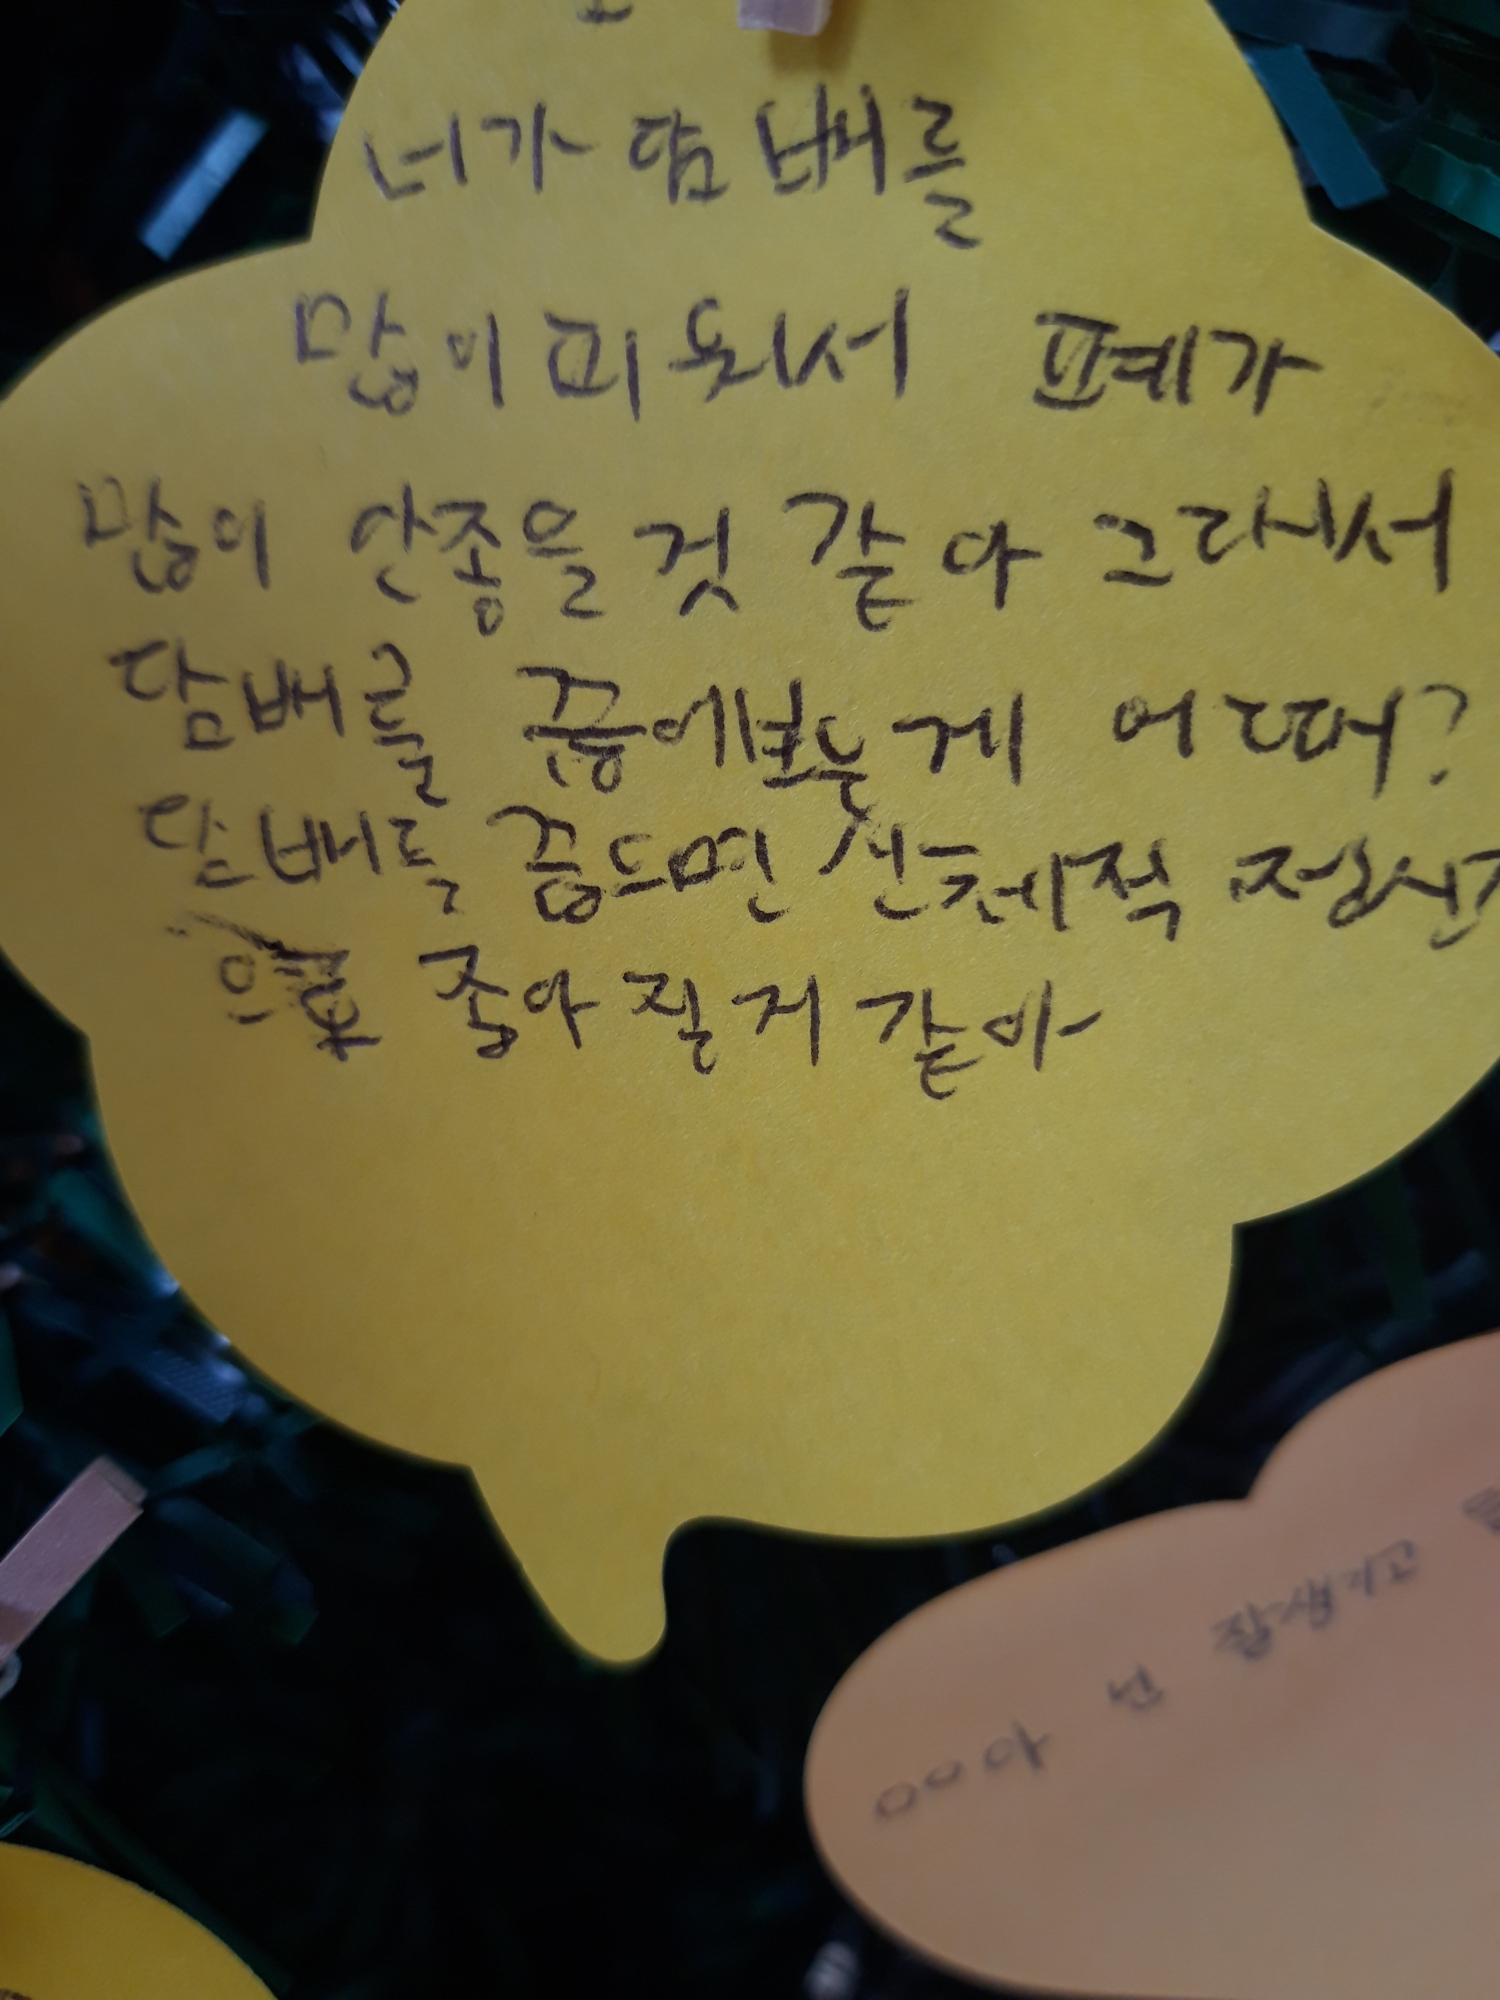 네가 담배를
많이 피워서 폐가
많이 안좋을 것 같아 그래서
담배를 끊어보는 게 어때?
담배를 끊으면 신체적 정신적
으로 좋아 질 거 같아
잘생기고
넌
ㅇㅇ아